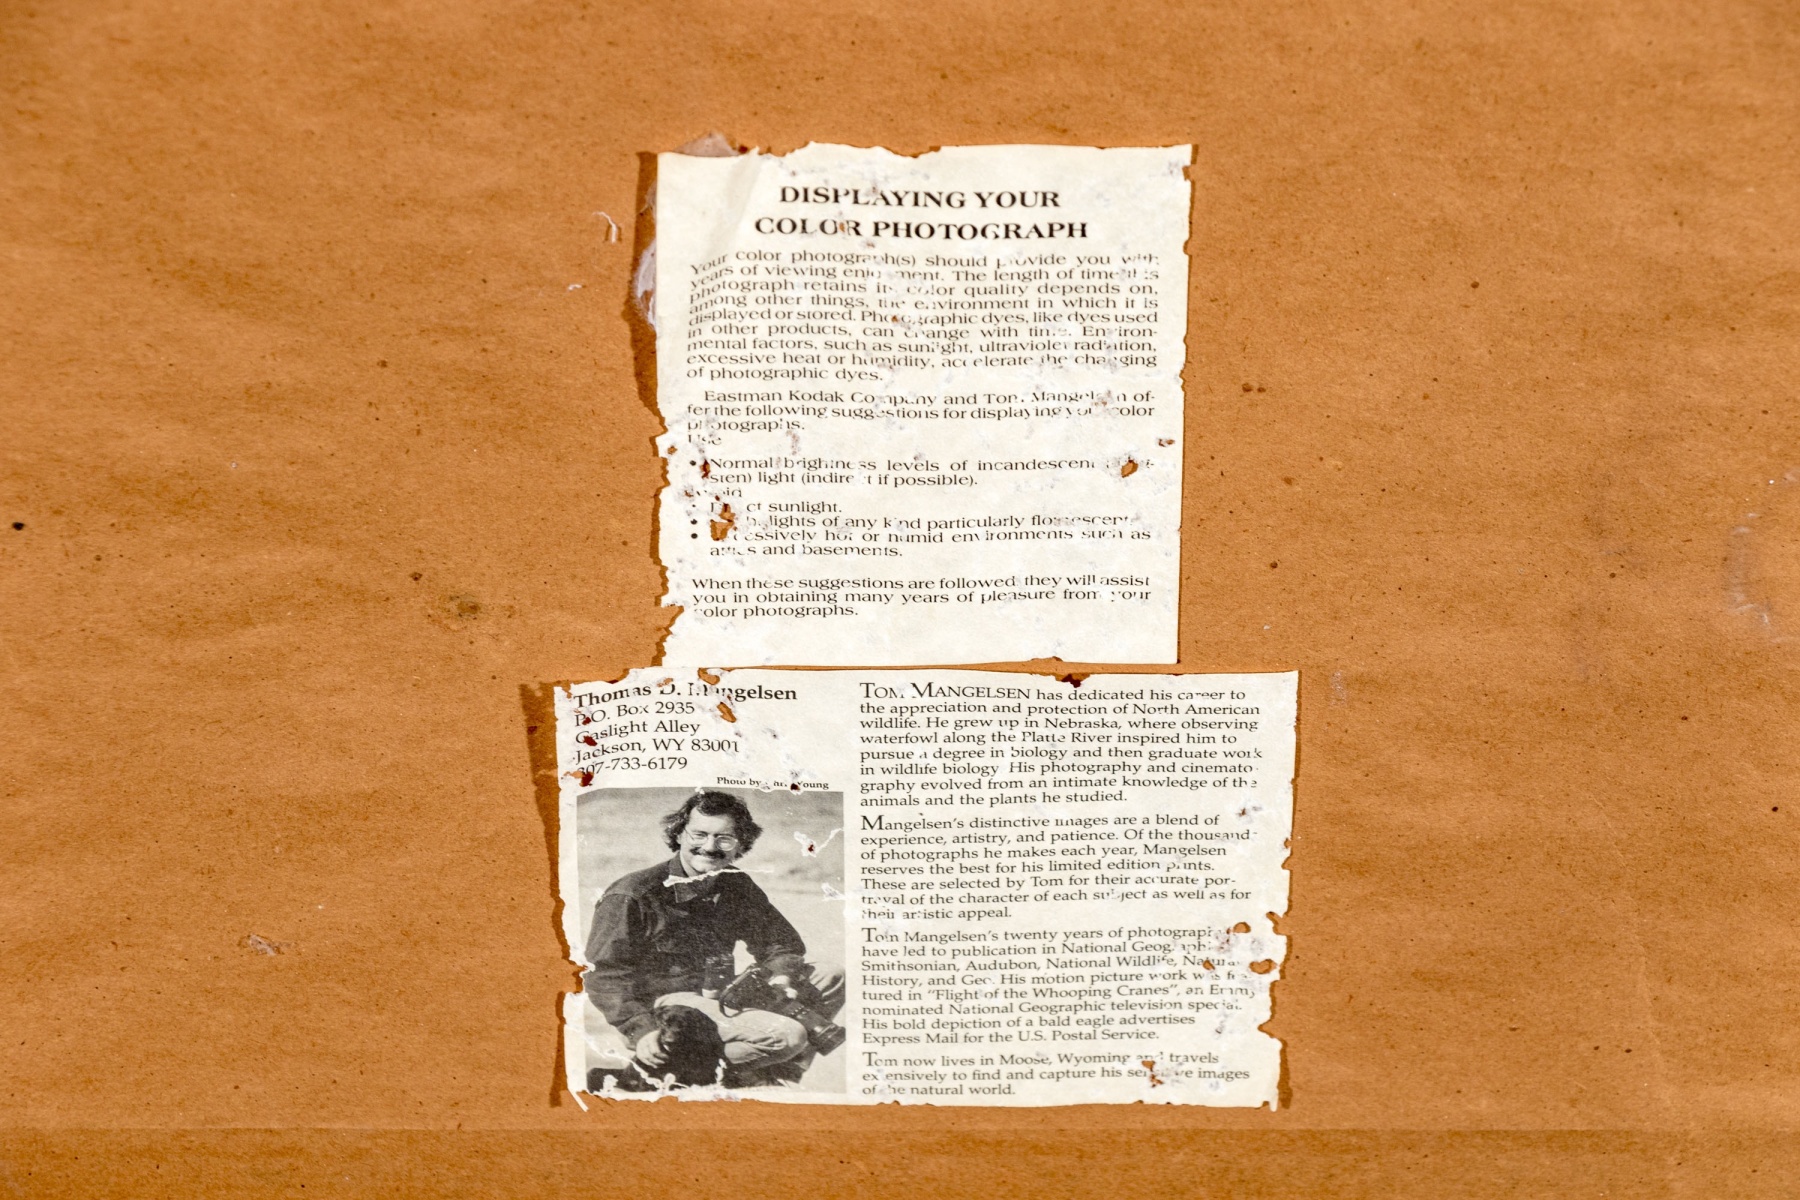 DISPLAYING YOUR
COLOR PHOTOGRAPH
Your color photograph(s) should provide you with
years of viewing enjoyment. The length of time this
photograph retains its color quality depends on,
among other things, the environment in which it is
displayed or stored. Photographic dyes, like dyes used
in other products, can change with time. Environ-
mental factors, such as sunlight, ultraviolet radiation,
excessive heat or humidity, accelerate the changing
of photographic dyes.
Eastman Kodak Company and Tom Mangelsen of-
fer the following suggestions for displaying your color
photographs.
Use
• Normal brightness levels of incandescent
light (indirect if possible).
Avoid
• Direct sunlight.
• lights of any kind particularly flourescent
• Excessively hot or humid environments such as
attics and basements.
When these suggestions are followed they will assist
you in obtaining many years of pleasure from your
color photographs.
Thomas D. Mangelsen
P.O. Box 2935
Gaslight Alley
Jackson, WY 83001
307-733-6179
Photo by Young
TOM MANGELSEN has dedicated his career to
the appreciation and protection of North American
wildlife. He grew up in Nebraska, where observing
waterfowl along the Platte River inspired him to
pursue a degree in biology and then graduate work
in wildlife biology. His photography and cinemato-
graphy evolved from an intimate knowledge of the
animals and the plants he studied.
Mangelsen's distinctive images are a blend of
experience, artistry, and patience. Of the thousands
of photographs he makes each year, Mangelsen
reserves the best for his limited edition prints.
These are selected by Tom for their accurate por-
trayal of the character of each subject as well as for
their artistic appeal.
Tom Mangelsen's twenty years of photography
have led to publication in National Geographic,
Smithsonian, Audubon, National Wildlife, Natural
History, and Geo. His motion picture work was fea-
tured in "Flight of the Whooping Cranes", an Emmy
nominated National Geographic television special.
His bold depiction of a bald eagle advertises
Express Mail for the U.S. Postal Service.
Tom now lives in Moose, Wyoming and travels
extensively to find and capture his sensitive images
of the natural world.